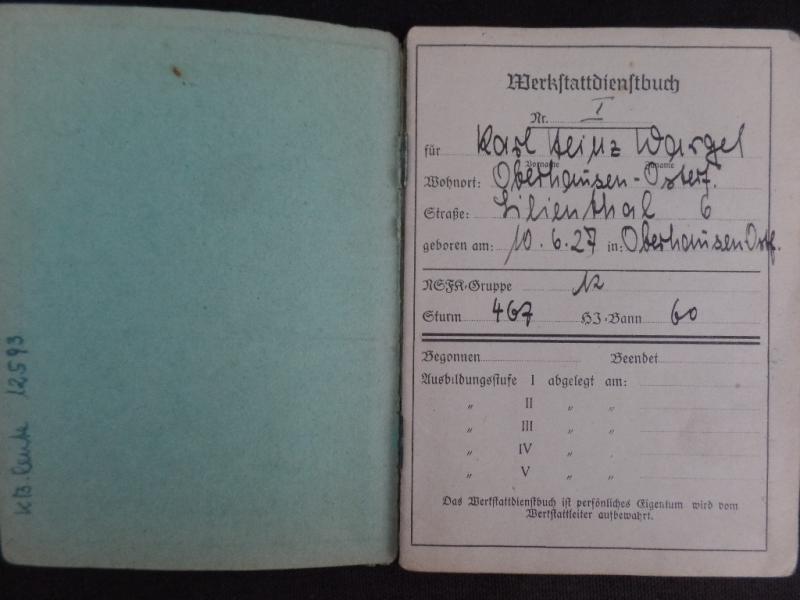 12593
Werkstattdienstbuch
Nr. I
für Karl Heinz Wargel
Vorname Zuname
Wohnort: Oberhausen-Osterf.
Straße: Lilienthal 6
geboren am: 10.6.27 in: Oberhausen Ostf.
NSFK-Gruppe 12
Sturm 467 HJ-Bann 60
Begonnen Beendet
Ausbildungsstufe I abgelegt am:
„ II „ „
„ III „ „
„ IV „ „
„ V „ „
Das Werkstattdienstbuch ist persönliches Eigentum wird vom
Werkstattleiter aufbewahrt.